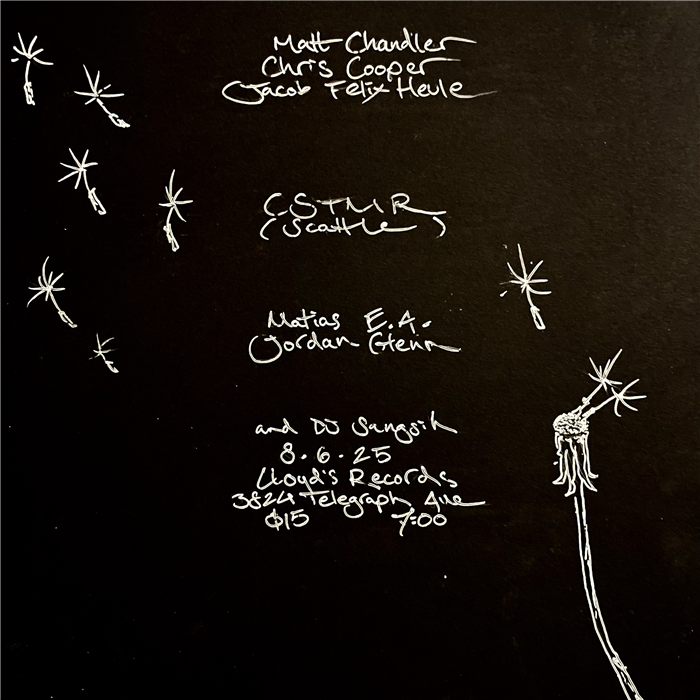 Matt Chandler
Chris Cooper
Jacob Felix Heule
CSTMR
(Seattle)
Matias E.A.
Jordan Glenn
and DJ Sangsik
8.6.25
Lloyd's Records
3824 Telegraph Ave
$15 7:00